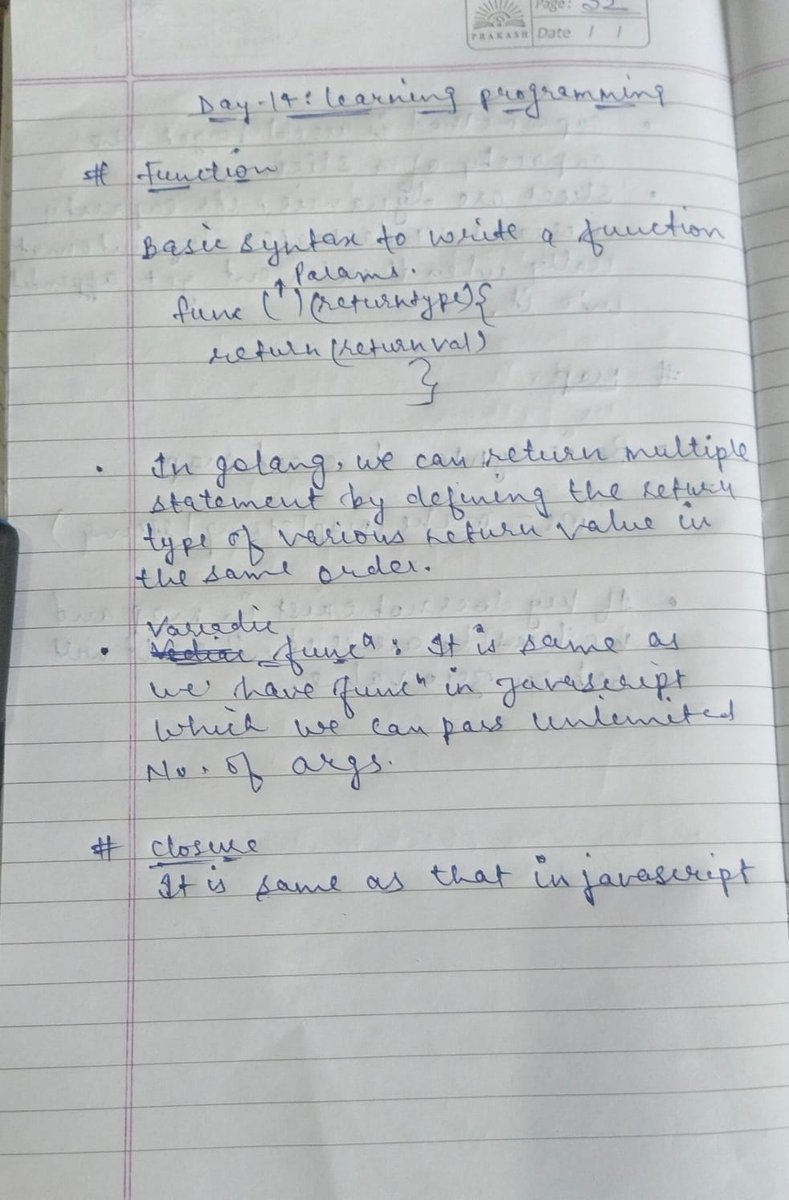 Page: 52
PRAKASH Date / /
Day-14: learning programming
# Function
Basic syntax to write a function
↑ Params.
func ( ) (returntype){
return (returnval)
}
• In golang, we can return multiple
statement by defining the return
type of various return value in
the same order.
Variadic
• funcⁿ : It is same as
we have funcⁿ in javascript
which we can pass unlimited
No. of args.
# closure
It is same as that in javascript